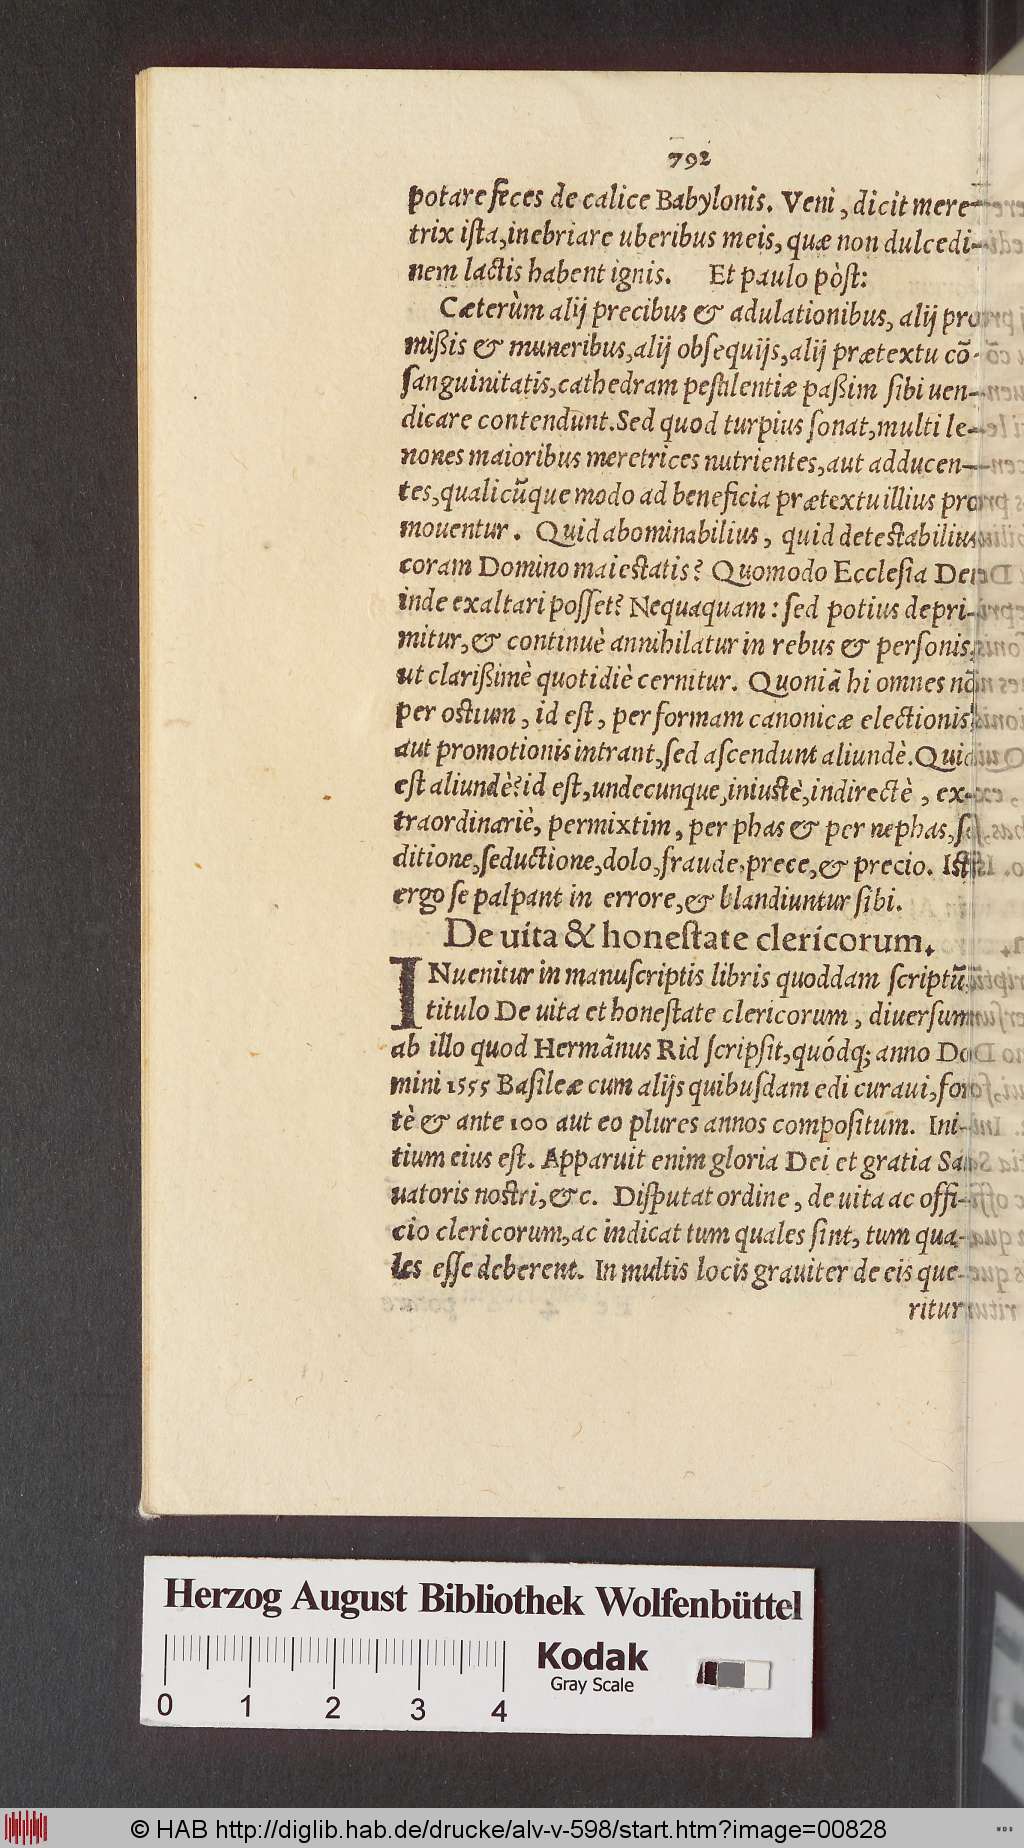 792
potare feces de calice Babylonis. Veni, dicit mere-
trix ista, inebriare uberibus meis, quæ non dulcedi-
nem lactis habent ignis. Et paulo pòst:
Cæterùm alij precibus & adulationibus, alij pro
mißis & muneribus, alij obsequijs, alij prætextu cō-
sanguinitatis, cathedram pestilentiæ paßim sibi uen-
dicare contendunt. Sed quod turpius sonat, multi le-
nones maioribus meretrices nutrientes, aut adducen-
tes, qualicūque modo ad beneficia prætextu illius pro
mouentur. Quid abominabilius, quid detestabilius
coram Domino maiestatis? Quomodo Ecclesia Dei
inde exaltari posset? Nequaquam: sed potius depri-
mitur, & continuè annihilatur in rebus & personis,
ut clarißimè quotidiè cernitur. Quoniā hi omnes nō
per ostium, id est, per formam canonicæ electionis
aut promotionis intrant, sed ascendunt aliundè. Quid
est aliundè? id est, undecunque, iniustè, indirectè, ex-
traordinariè, permixtim, per phas & per nephas, se-
ditione, seductione, dolo, fraude, prece, & precio. Isti
ergo se palpant in errore, & blandiuntur sibi.
De uita & honestate clericorum.
INuenitur in manuscriptis libris quoddam scriptū,
titulo De uita et honestate clericorum, diuersum
ab illo quod Hermānus Rid scripsit, quódq; anno Do
mini 1555 Basileæ cum alijs quibusdam edi curaui, for
tè & ante 100 aut eo plures annos compositum. Ini-
tium eius est. Apparuit enim gloria Dei et gratia Sal
uatoris nostri, &c. Disputat ordine, de uita ac offi-
cio clericorum, ac indicat tum quales sint, tum qua-
les esse deberent. In multis locis grauiter de eis que-
ritur
Herzog August Bibliothek Wolfenbüttel
Kodak
Gray Scale
0 1 2 3 4
© HAB http://diglib.hab.de/drucke/alv-v-598/start.htm?image=00828